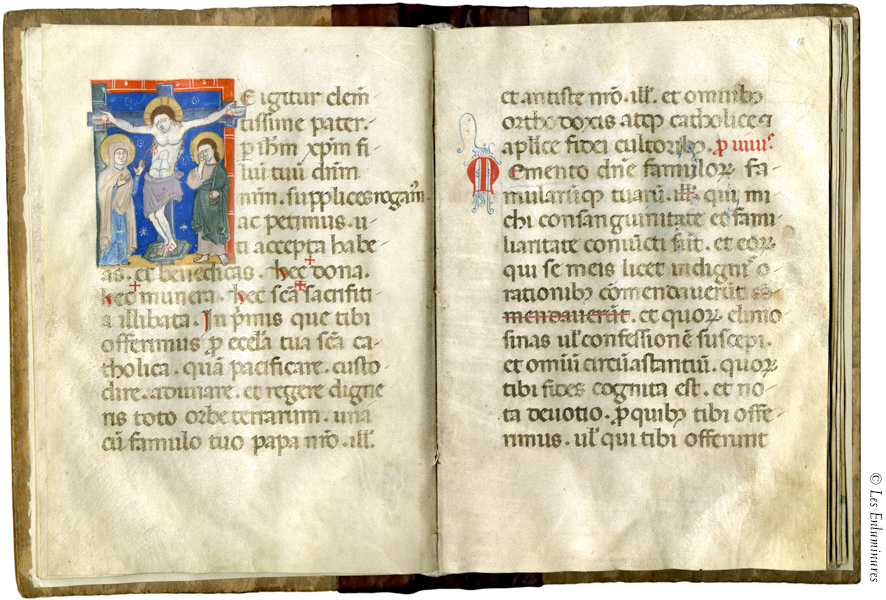 E igitur clem̄
tissime pater.
p ihm̄ xp̄m fi-
lium tuū dn̄m
nrm̄. supplices rogam᷑.
ac petimus. u-
ti accepta habe-
as. et benedicas. hec + dona.
hec + munera. hec scā + sacrifiti-
a illibata. In p̄mis que tibi
offerimus ꝓ eccl̄a tua scā ca-
tholica. quā pacificare. custo-
dire. adunare. et regere digne-
ris toto orbe terrarum. una
cū famulo tuo papa nr̄o. ill̄.
et antiste nr̄o. ill̄. et omnibꝰ
ortho doxis atqꝫ catholice &
ap̄lice fidei cultoribꝰ. ꝓ uiuis.
Memento dn̄e famulorꝝ fa-
mularūqꝫ tuarū. ill̄. qui mi-
chi consanguinitate & fami-
liaritate coniūcti sūt. et eorꝝ
qui se meis licet indignis o-
rationibꝰ cōmendauerūt cō-
mendauerūt. et quorꝝ elimo-
sinas ul̄ confessionē suscepi.
et omiū circūastantiū. quorꝝ
tibi fides cognita est. et no-
ta deuotio. ꝓ quibꝰ tibi offe-
rimus. ul̄ qui tibi offerunt
© Les Enluminures